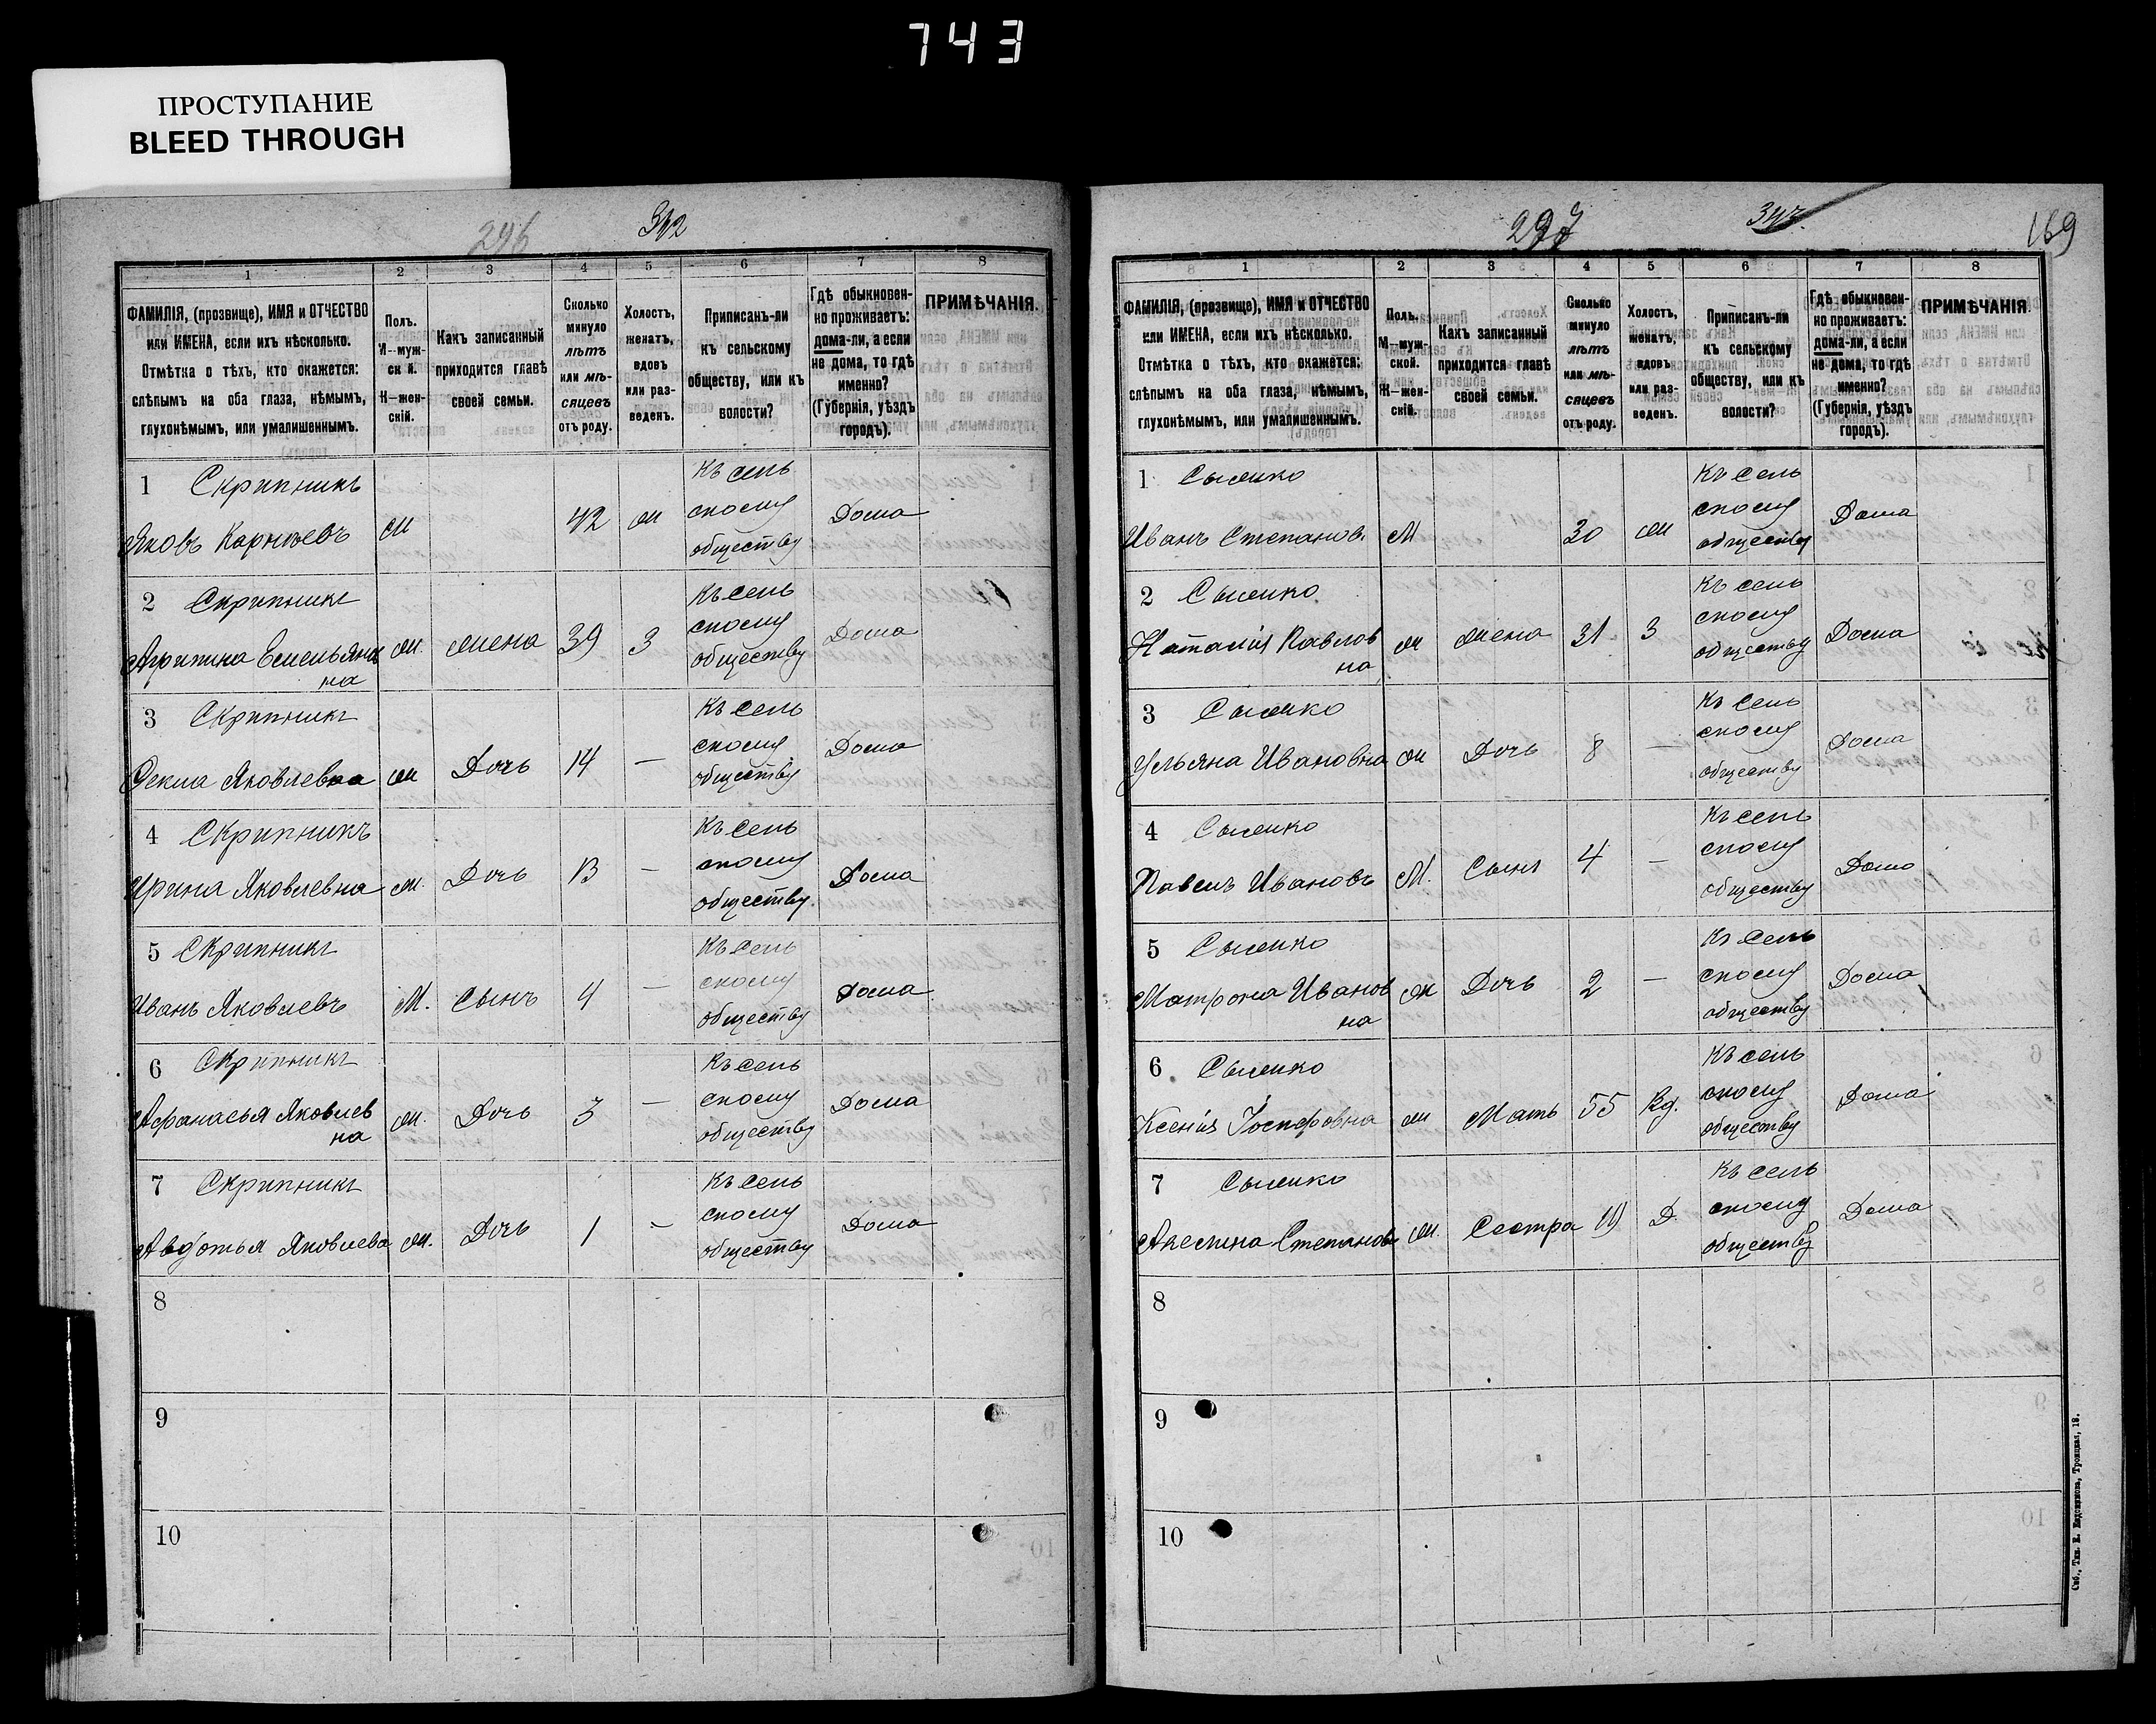 743
ПРОСТУПАНИЕ
BLEED THROUGH
296
312
1 2 3 4 5 6 7 8
ФАМИЛІЯ, (прозвище), ИМЯ и ОТЧЕСТВО
или ИМЕНА, если ихъ нѣсколько.
Отмѣтка о тѣхъ, кто окажется:
слѣпымъ на оба глаза, нѣмымъ,
глухонѣмымъ, или умалишеннымъ.
Полъ.
М—муж-
ской.
Ж—жен-
скій.
Какъ записанный
приходится главѣ
своей семьи.
Сколько
минуло
лѣтъ
или мѣ-
сяцевъ
отъ роду.
Холостъ,
женатъ,
вдовъ
или раз-
веденъ.
Приписанъ-ли
къ сельскому
обществу, или къ
волости?
Гдѣ обыкновен-
но проживаетъ:
дома-ли, а если
не дома, то гдѣ
именно?
(Губернія, уѣздъ
городъ).
ПРИМѢЧАНІЯ.
1 Скрипникъ
Яковъ Карнѣевъ м 42 ж Къ сель
скому
обществу Дома
2 Скрипникъ
Агрипина Емельянов
на ж. жена 39 З Къ сель
скому
обществу Дома
3 Скрипникъ
Фекла Яковлевна ж Дочь 14 — Къ сель
скому
обществу Дома
4 Скрипникъ
Ирина Яковлевна ж. Дочь 13 — Къ сель
скому
обществу. Дома
5 Скрипникъ
Иванъ Яковлевъ М. Сынъ 4 — Къ сель
скому
обществу Дома
6 Скрипникъ
Афанасья Яковлев
на ж. Дочь 3 — Къ сель
скому
обществу Дома
7 Скрипникъ
Авдотья Яковлева ж. Дочь 1 — Къ сель
скому
обществу Дома
8
9
10
297
169
1 2 3 4 5 6 7 8
ФАМИЛІЯ, (прозвище), ИМЯ и ОТЧЕСТВО
или ИМЕНА, если ихъ нѣсколько.
Отмѣтка о тѣхъ, кто окажется:
слѣпымъ на оба глаза, нѣмымъ,
глухонѣмымъ, или умалишеннымъ.
Полъ.
М—муж-
ской.
Ж—жен-
скій.
Какъ записанный
приходится главѣ
своей семьи.
Сколько
минуло
лѣтъ
или мѣ-
сяцевъ
отъ роду.
Холостъ,
женатъ,
вдовъ
или раз-
веденъ.
Приписанъ-ли
къ сельскому
обществу, или къ
волости?
Гдѣ обыкновен-
но проживаетъ:
дома-ли, а если
не дома, то гдѣ
именно?
(Губернія, уѣздъ
городъ).
ПРИМѢЧАНІЯ.
1
Иванъ Степанов. М 30 ж Къ сель
скому
обществу Дома
2
Наталія Павлов
на ж жена 31 З Къ сель
скому
обществу Дома
3
Ульяна Ивановна ж Дочь 8 — Къ сель
скому
обществу Дома
4
Павелъ Ивановъ М. Сынъ 4 — Къ сель
скому
обществу Дома
5
Матрона Иванов
на ж Дочь 2 — Къ сель
скому
обществу Дома
6
Ксенія Іосифовна ж Мать 55 Къ сель
скому
обществу Дома
7
Степанов ж. Сестра 19 Д. Къ сель
скому
обществу Дома
8
9
10
Спб., Тип. Е. Евдокимова, Троицкая, 18.